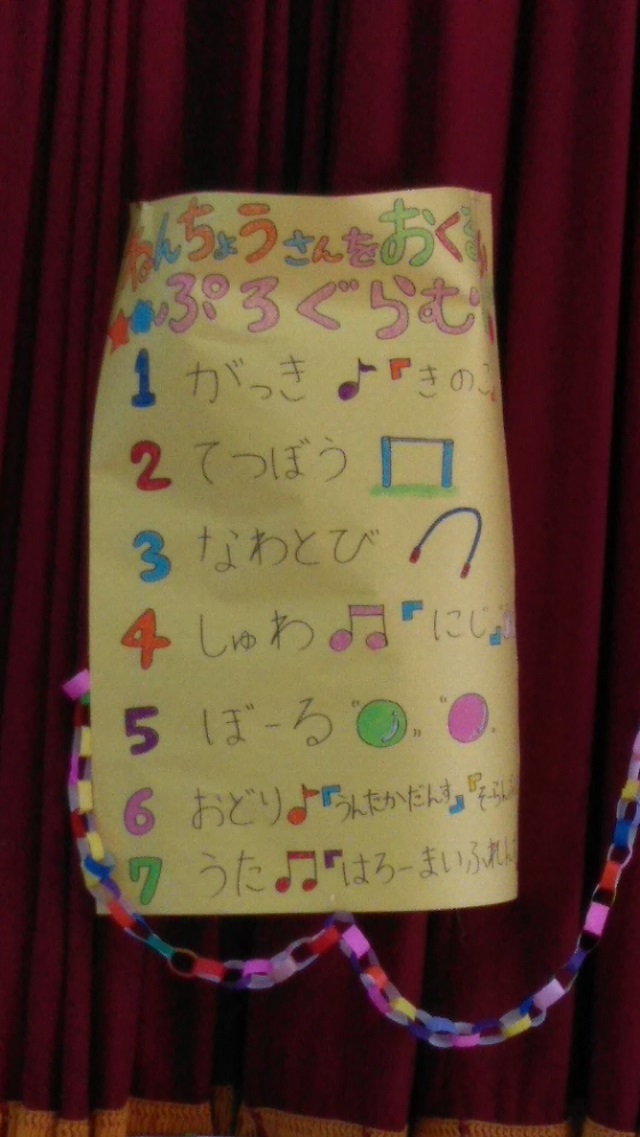 ねんちょうさんをおくる
ぷろぐらむ
1 がっき 『きのこ
2 てつぼう
3 なわとび
4 しゅわ 『にじ』
5 ぼーる
6 おどり『うんたかだんす』『そーらん
7 うた『はろーまいふれん